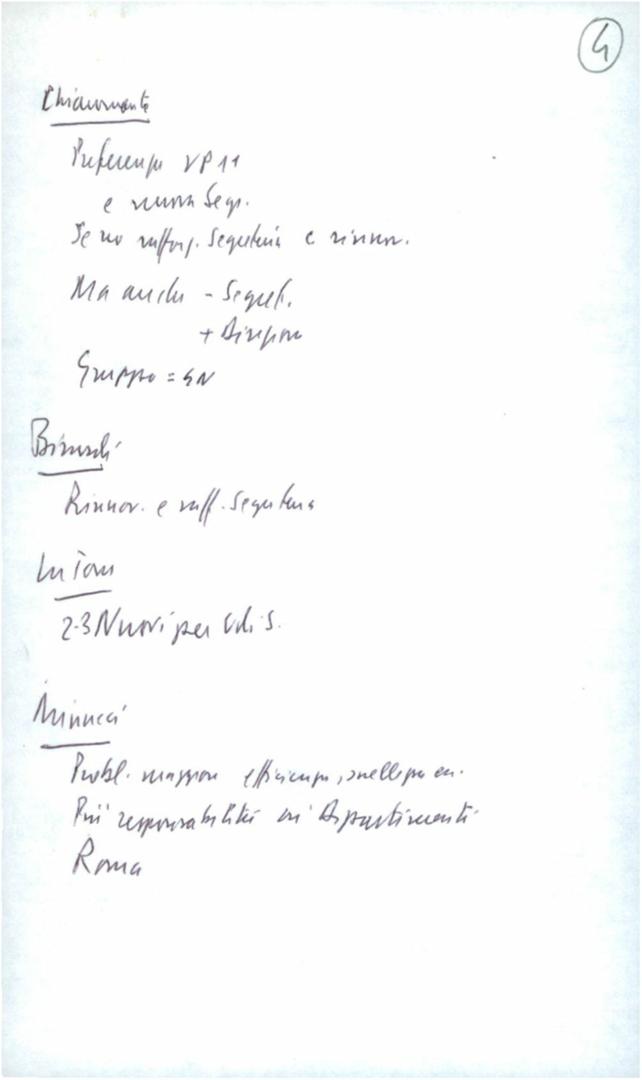 4
Chiaromonte
Preferenza VP 11
e nuova Segr.
Se no rafforz. Segreteria e rinnov.
Ma anche - Segret.
+ Direzione
Gruppo =
Birardi
Rinnov. e raff. Segreteria
2-3 Nuovi per
Minucci
Probl. maggiore efficienza, snellezza ecc.
Più responsabilità ai Dipartimenti
Roma